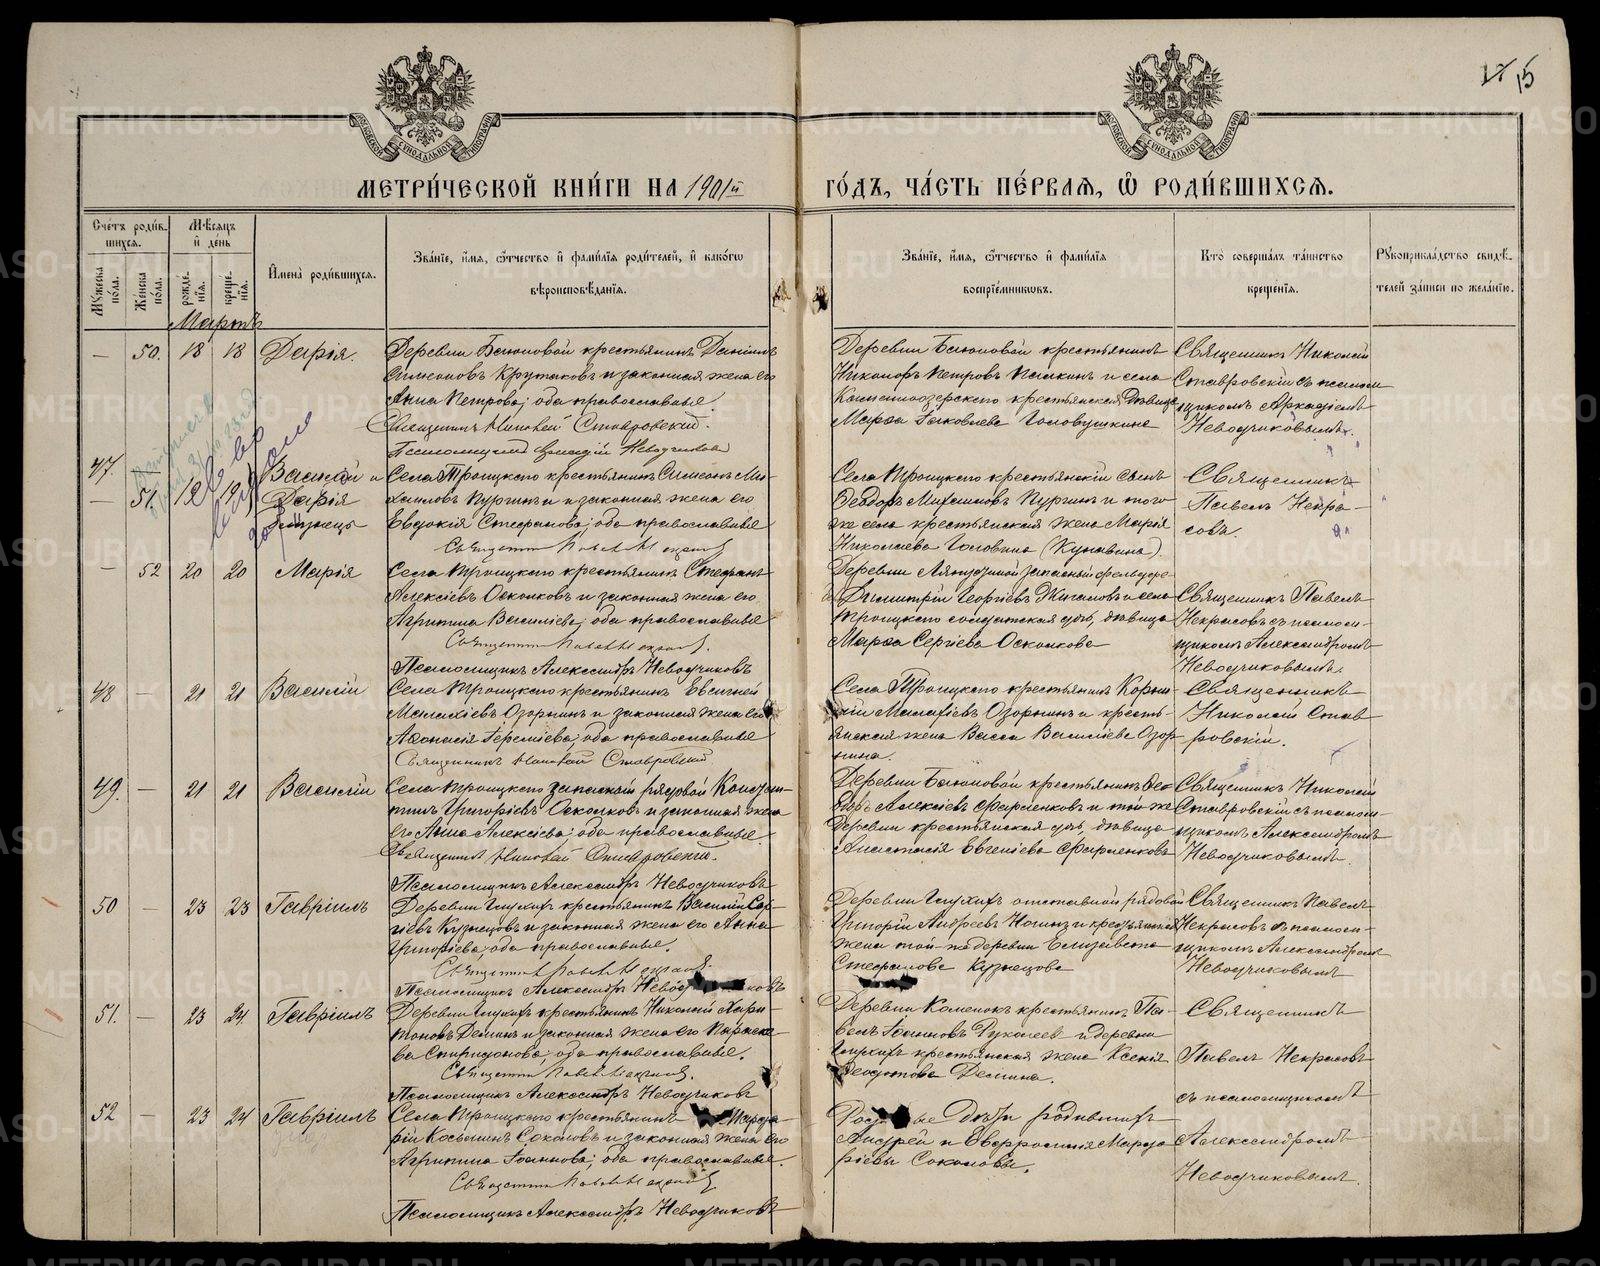 17 15
МЕТРИ́ЧЕСКОЙ КНИ́ГИ НА 1901й ГО́ДЪ, ЧА́СТЬ ПЕ́РВАЯ, Ѡ҆ РОДИ́ВШИХСЯ.
Сче́тъ роди́в-
шихся.
Мѣ́сяцъ
и҆ де́нь
Мꙋ́жеска по́ла.
Же́нска по́ла.
рожде́-
нїя.
креще́-
нїя.
И҆мена̀ роди́вшихся.
Зва́нїе, и҆́мя, ѻ҆́тчество и҆ фами́лїя роди́телей, и҆ како́гѡ
вѣроисповѣ́данїя.
Зва́нїе, и҆́мя, ѻ҆́тчество и҆ фами́лїя
воспрїе́мникѡвъ.
Кто̀ соверша́лъ та́инство
креще́нїя.
Рꙋкоприкла́дство свидѣ́-
телей за́писи по жела́нїю.
Мартъ
— 50. 18 18 Дарія.
Деревни Баюновой крестьянинъ Данiилъ
Симеоновъ Крутаковъ и законная жена его
Анна Петрова; оба православные.
Священникъ Николай Ставровский.
Псаломщикъ Аркадій Неводчиковъ
Деревни Баюновой крестьянинъ
Никаноръ Петровъ Палкинъ и села
Каменноозерскаго крестьянская дѣвица
Марѳа Іаковлева Головушкина
Священникъ Николай
Ставровскій съ псалом-
щикомъ Аркадіемъ
Неводчиковымъ.
47. —
— 51. 19 Василій и
Дарія
близнецы
Села Троицкаго крестьянинъ Симеонъ Ми-
хаиловъ Пургинъ и законная жена его
Евдокія Стефанова; оба православные
Священникъ Павелъ Некрасовъ
Села Троицкаго крестьянскій сынъ
Ѳеодоръ Михаиловъ Пургинъ и того
же села крестьянская жена Марія
Николаева Головина (Кунавина).
Священникъ
Павелъ Некра-
совъ.
— 52 20 20 Марія
Села Троицкаго крестьянинъ Стефанъ
Алексіевъ Осколковъ и законная жена его
Агрипина Василіева; оба православные
Священникъ Павелъ Некрасовъ.
Псаломщикъ Александръ Неводчиковъ
Деревни запасный фельдфе-
Димитрій Георгіевъ Жигаловъ и села
Троицкаго солдатская дочь, дѣвица
Марѳа Сергіева Осколкова
Священникъ Павелъ
Некрасовъ съ псалом-
щикомъ Александромъ
Неводчиковымъ.
48 — 21 21 Василій
Села Троицкаго крестьянинъ Евгеній
Малахіевъ Озорнинъ и законная жена его
Аѳанасія Іереміева; оба православные
Священникъ Николай Ставровскій
Села Троицкаго крестьянинъ Корни-
лій Малахіевъ Озорнинъ и кресть-
янская жена Васса Василіева Озор-
нина.
Священникъ
Николай Став-
ровскій.
49. — 21 21 Василій
Села Троицкаго запасный рядовой Констан-
тинъ Григоріевъ Осколковъ и законная жена
его Анна Алексіева; оба православные.
Священникъ Николай Ставровскій.
Псаломщикъ Александръ Неводчиковъ
Деревни Баюновой крестьянинъ Ѳео-
доръ Алексіевъ Фарленковъ и той же
деревни крестьянская дочь, дѣвица
Анастасія Евгеніева Фарленкова
Священникъ Николай
Ставровскій съ псалом-
щикомъ Александромъ
Неводчиковымъ.
50 — 23 23 Гавріилъ
Деревни Глухихъ крестьянинъ Василій Сер-
гіевъ Кузнецовъ и законная жена его Анна
Григоріева; оба православные.
Священникъ Павелъ Некрасовъ.
Псаломщикъ Александръ
Деревни Глухихъ отставной рядовой
Григорій Андреевъ и крестьянская
жена той же деревни Елизавета
Стефанова Кузнецова
Священникъ Павелъ
Некрасовъ съ псалом-
щикомъ Александромъ
Неводчиковымъ
51. — 23 24. Гавріилъ
Деревни Глухихъ крестьянинъ Николай Хари-
тоновъ Деминъ и законная жена его Параске-
ва Спиридонова; оба православные.
Священникъ Павелъ Некрасовъ.
Псаломщикъ Александръ Неводчиковъ
Деревни Каменокъ крестьянинъ Па-
велъ Іоанновъ и деревни
Глухихъ крестьянская жена Ксенія
Ѳеодотова Демина.
Священникъ
Павелъ Некрасовъ
съ псаломщикомъ
Александромъ
Неводчиковымъ.
52 — 23 24 Гавріилъ
Села Троицкаго крестьянинъ Марда-
рій Косьминъ Соколовъ и законная жена его
Агрипина Іоаннова; оба православные.
Священникъ Павелъ Некрасовъ
Псаломщикъ Александръ Неводчиковъ
дѣти родившихъ
Андрей и Евфросинія Марда-
ріевы Соколовы.
METRIKI.GASO-URAL.RU